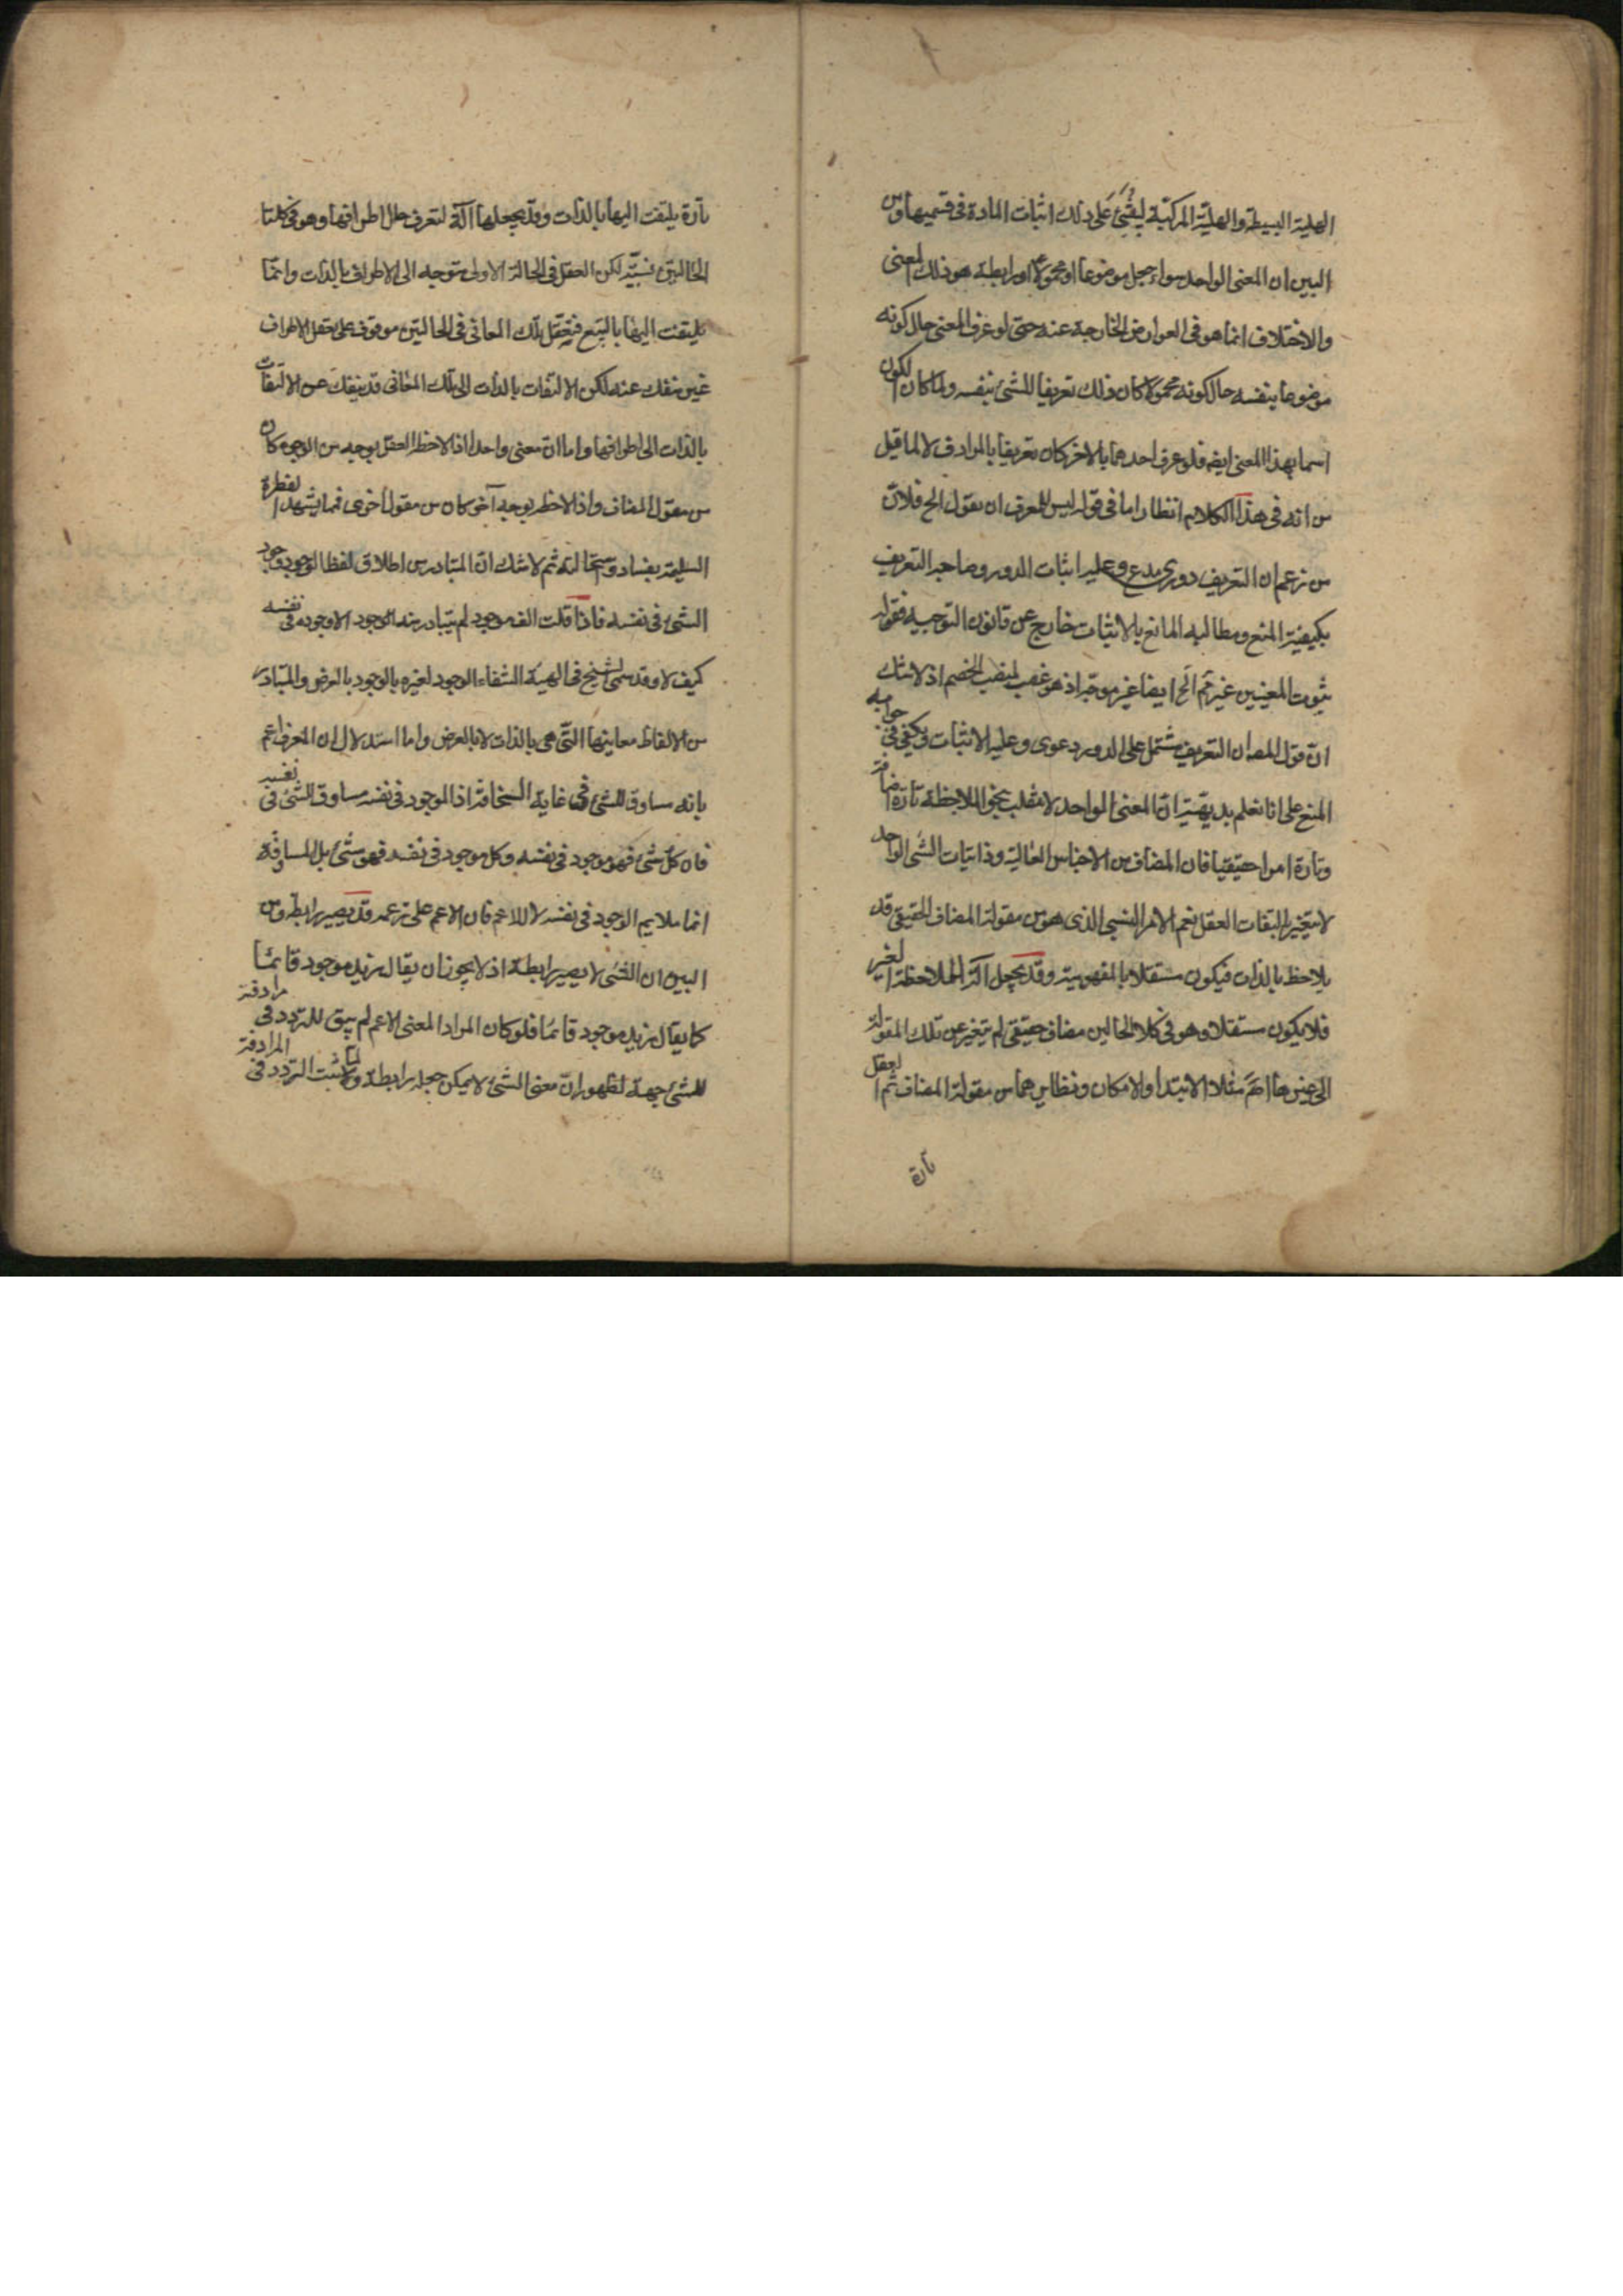 الهلية البسيطة والهلية المركبة ليبتنى على ذلك اثبات المادة فى قسميها ومن
البين ان المعنى الواحد سواء جعل موضوعا او محمولا او رابطة هو ذلك المعنى
والاختلاف انما هو فى العوارض الخارجة عنه حتى لو عرف المعنى حال كونه
موضوعا بنفسه حال كونه محمولا كان ذلك تعريفا للشئ بنفسه ولما كان الكون
اسما بهذا المعنى ايضه فلو عرف احدهما بالاخر كان تعريفا بالمرادف لا لما قيل
من انه فى هذا الكلام انظار اما فى قوله ليس للمعرف ان يقول الخ فلان
من زعم ان التعريف دورى مدع وعليه اثبات الدور وصاحب التعريف
يكفيه المنع ومطالبه المانع بالاثبات خارج عن قانون التوجيه فقوله
ثبوت المعنيين غير تم الخ ايضا غير موجه اذ هو غصب لمنصب الخصم اذ لا شك
ان قول المصه ان التعريف مشتمل على الدور دعوى وعليه الاثبات ويكفى فى جوابه
المنع على انا نعلم بديهة ان المعنى الواحد لا ينقلب بنحو الملاحظة تارة اضافة
وتارة امرا حقيقيا فان المضاف من الاجناس العالية وذاتيات الشئ الواحد
لا يتغير بالتفات العقل نعم الامر النسبى الذى هو من مقولة المضاف الحقيقى قد
يلاحظ بالذات فيكون مستقلا بالمفهومية وقد يجعل آلة لملاحظة الغير
فلا يكون مستقلا وهو فى كلا الحالين مضاف حقيقى لم يتغير عن تلك المقولة
الى غيرها اهـ مثلا الابتدا والامكان ونظايرهما من مقولة المضاف ثم العقل
تارة
تارة يلتفت اليها بالذات وقد يجعلها آلة لتعرف حال اطرافها وهو فى كلتا
الحالتين نسبية لكن العقل فى الحالة الاولى متوجه الى الاطراف بالذات وانما
يلتفت اليها بالتبع فتعقل تلك المعانى فى الحالتين موقوف على تعقل الاطراف
غير منفك عنه لكن الالتفات بالذات الى تلك المعانى قد ينفك عن الالتفات
بالذات الى اطرافها واما ان معنى واحدا اذا لاحظ العقل بوجه من الوجوه كان
من مقولة المضاف واذا لاحظه بوجه آخر كان من مقولة اخرى فمما يشهد الفطرة
السليمة بفساده وسخافته ثم لا شك ان المتبادر من اطلاق لفظ الوجود وجود
الشئ فى نفسه فاذا قلت الف موجود لم يتبادر منه الوجود الا وجوده فى نفسه
كيف لا وقد سمى الشيخ فى الهية الشفاء الوجود لغيره بالوجود بالعرض والمتبادر
من الالفاظ معاينها التى هى بالذات لا بالعرض واما استدلال ان المعرف اعم
بانه مساوق للشئ فى غاية السخافة اذ الموجود فى نفسه مساوق للشئ فى نفسه
فان كل شئ فهو موجود فى نفسه وكل موجود فى نفسه فهو شئ بل المساوقة
انما يلايم الوجود فى نفسه لا للاعم فان الاعم على زعمه قد يصير رابطة ومن
البين ان الشئ لا يصير رابطة اذ لا يجوز ان يقال زيد موجود قائما
كما يقال زيد موجود قائما فلو كان المراد المعنى الاعم لم يبق للتردد فى مرادفته
للشئ جهة لظهور ان معنى الشئ لا يمكن جعله رابطة ولما ثبت التردد فى المرادفة